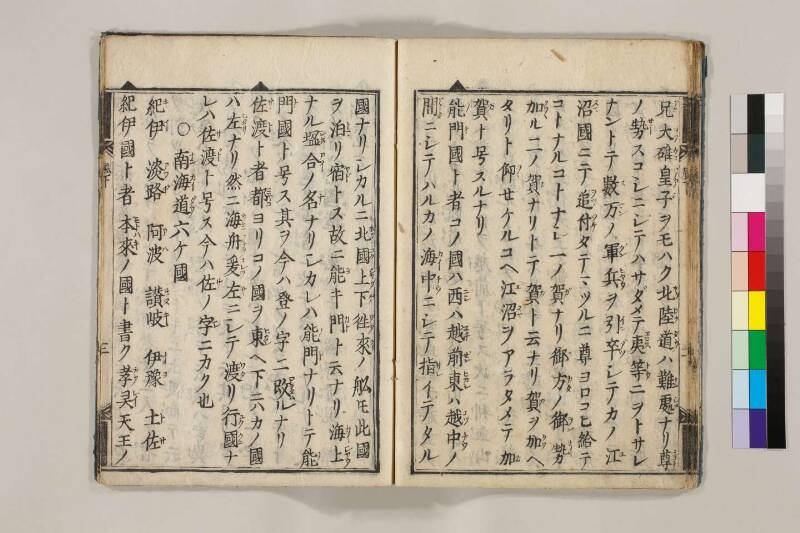 兄大碓皇子ヲモハク北陸道ハ難處ナリ尊
ノ勢スコシニシテハサダメテ夷等ニヲトサレ
ナントテ數万ノ軍兵ヲ引卒シテカノ江
沼國ニテ追付タテマツルニ尊ヨロコヒ給テ
コトナルコトナシ一ノ賀ナリ御方ノ御勢
加ル二ノ賀ナリトテ賀ト云ナリ賀ヲ加ヘ
タリト仰セケルコヘ江沼ヲアラタメテ加
賀ト号スルナリ
能門國ト者コノ國ハ西ハ越前東ハ越中ノ
間ニシテハルカノ海中ニシテ指イテタル
國ナリシカルニ北國上下徃來ノ舩モ此國
ヲ泊リ宿トス故ニ能キ門ト云ナリ海上
ナル塩合ノ名ナリシカレハ能門ナリトテ能
門國ト号ス其ヲ今ハ登ノ字ニ改ルナリ
佐渡ト者都ヨリコノ國ヲ東ヘ下六カノ國
ハ左ナリ然ニ海舟爰左ニシテ渡リ行國ナ
レハ佐渡ト号ス今ハ佐ノ字ニカク也
○南海道六ケ國
紀伊 淡路 阿波 讃岐 伊豫 土佐
紀伊國ト者本來ノ國ト書ク孝灵天王ノ